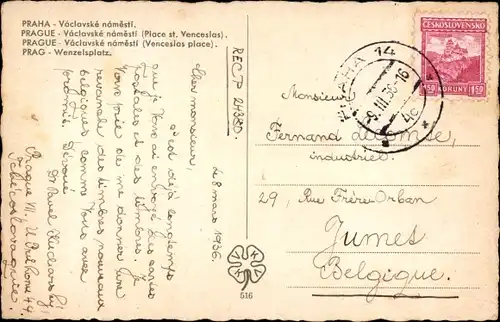 PRAHA - Václavské náměstí.
PRAGUE - Václavské náměstí (Place st. Venceslas).
PRAGUE - Václavské náměstí (Venceslos place).
PRAG - Wenzelsplatz.
REC P 24380.
Le 8 mars 1936.
Cher monsieur,
c'est déjà longtemps
que je Vous ai envoyé des cartes
postales et des timbres. Je
Vous prie de me donner une
revanche des timbres nouveaux
belgiques comme Vous avez
promis. Dévoué
Dr Pavel
Prague VII, U 44.
Tchécoslovaquie
516
ČESKOSLOVENSKO
1.50 KORUNY 1.50
PRAHA 14
8.III.36-16
4c
Monsieur
Fernand de Comse,
industriel.
29, Rue Frère-Orban
Jumet
Belgique.